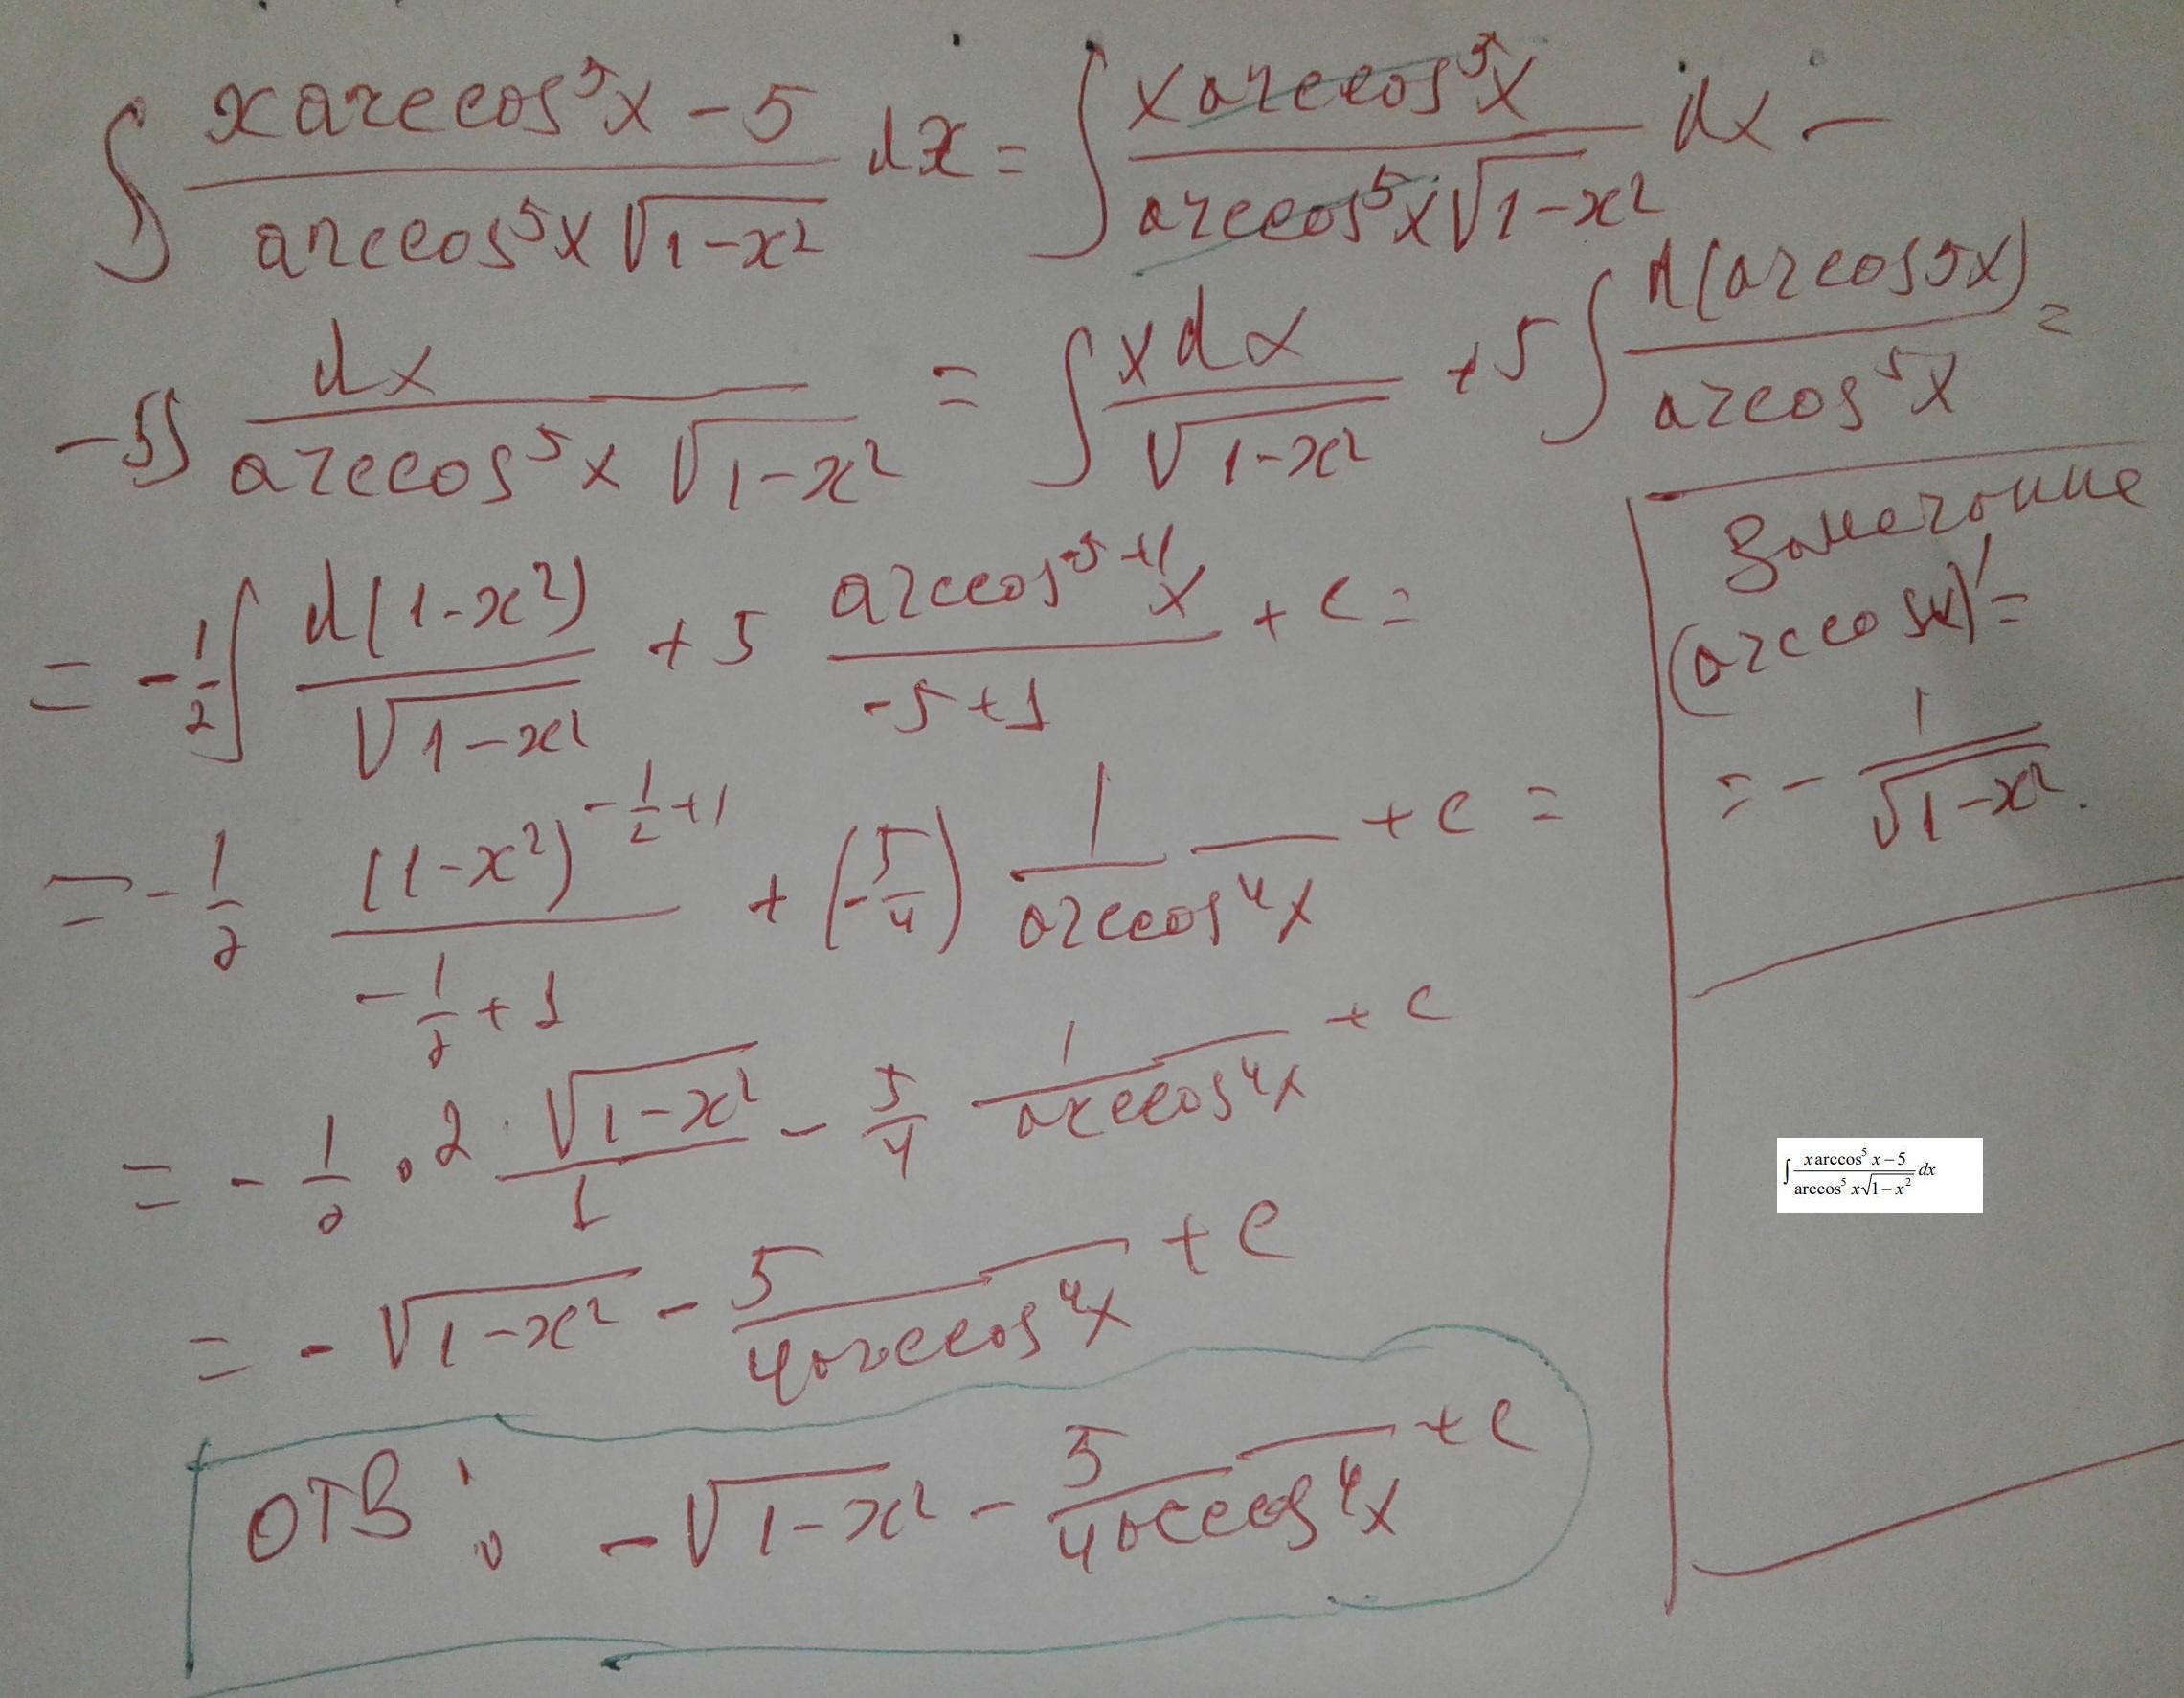 ∫ (x arccos⁵x − 5)/(arccos⁵x √(1−x²)) dx = ∫ (x arccos⁵x)/(arccos⁵x √(1−x²)) dx −
−5∫ dx/(arccos⁵x √(1−x²)) = ∫ xdx/√(1−x²) + 5∫ d(arcos5x)/(arcos⁵x) =
= −1/2 ∫ d(1−x²)/√(1−x²) + 5 (arccos⁻⁵⁺¹x)/(−5+1) + c =
= −1/2 (1−x²)^(−1/2+1)/(−1/2+1) + (−5/4) 1/(arccos⁴x) + c =
= −1/2 · 2 · √(1−x²)/1 − 5/4 1/(arccos⁴x) + c
= −√(1−x²) − 5/(4arccos⁴x) + c
ОТВ: −√(1−x²) − 5/(4arccos⁴x) + c
Замечание
(arccosx)' =
= − 1/√(1−x²).
∫ (x arccos⁵ x − 5)/(arccos⁵ x√(1−x²)) dx